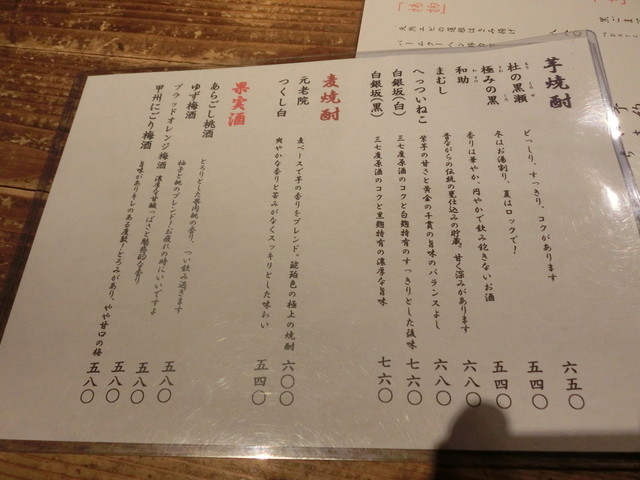 芋焼酎
杜の黒瀬 どっしり、すっきり、コクがあります 六五〇
極みの黒 冬はお湯割り、夏はロックで! 五四〇
和助 香りは華やか、円やかで飲み飽きないお酒 五四〇
まむし 昔ながらの伝統の甕仕込みの貯蔵。甘く深みがあります 六八〇
へっついねこ 紫芋の甘さと黄金の千貫の旨味のバランスよし 六八〇
白銀坂(白) 三七度原酒のコクと白麹特有のすっきりとした後味 七六〇
白銀坂(黒) 三七度原酒のコクと黒麹特有の濃厚な旨味 七六〇
麦焼酎
元老院 麦ベースで芋の香りをブレンド。琥珀色の極上の焼酎 六〇〇
つくし白 爽やかな香りと苦みがなくスッキリとした味わい 五四〇
果実酒
あらごし桃酒 とろりとした果肉桃の香り、つい飲み過ぎます 五八〇
ゆず梅酒 柚子と桃のブレンド!お疲れの時にいいですよ 五八〇
ブラッドオレンジ梅酒 濃厚な甘酸っぱさと魅惑的な香り 五八〇
甲州にごり梅酒 旨味がありキレのある後製!とろみがあり、やや甘口の梅 五八〇